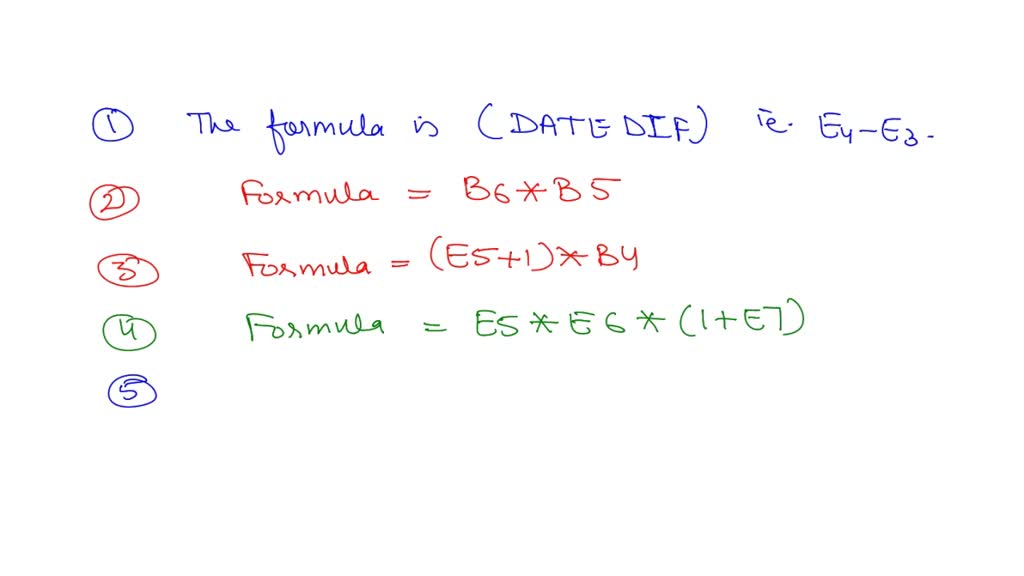 ① The formula is (DATEDIF) ie. E4-E3.
② Formula = B6*B5
③ Formula = (E5+1)*B4
④ Formula = E5*E6*(1+E7)
⑤